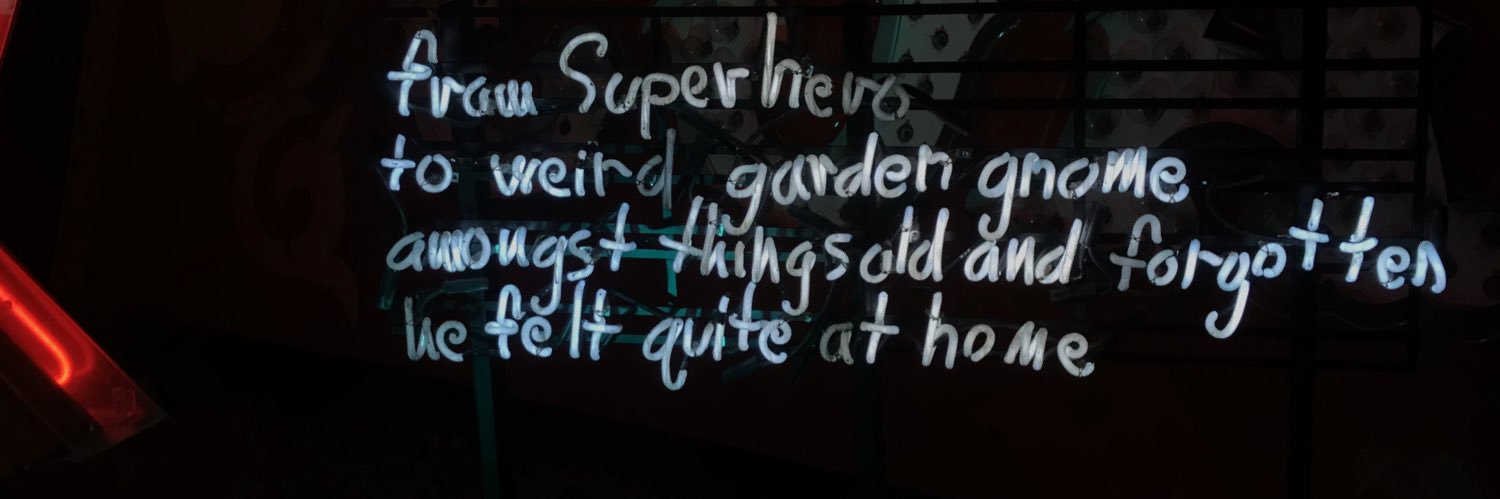 from Superhero
to weird garden gnome
amongst things old and forgotten
he felt quite at home